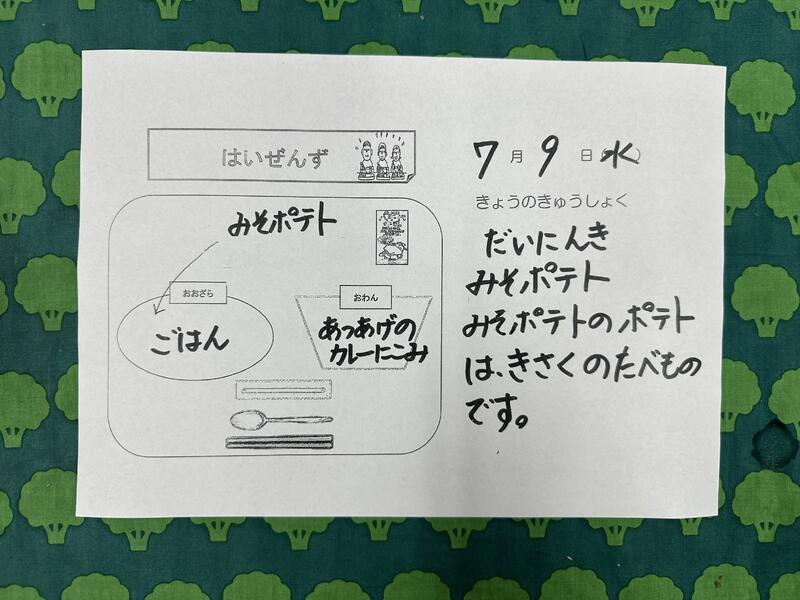 はいぜんず
みそポテト
おおざら
ごはん
おわん
あつあげの
カレーにこみ
7月9日(水)
きょうのきゅうしょく
だいにんき
みそポテト
みそポテトのポテト
は、きさくのたべもの
です。